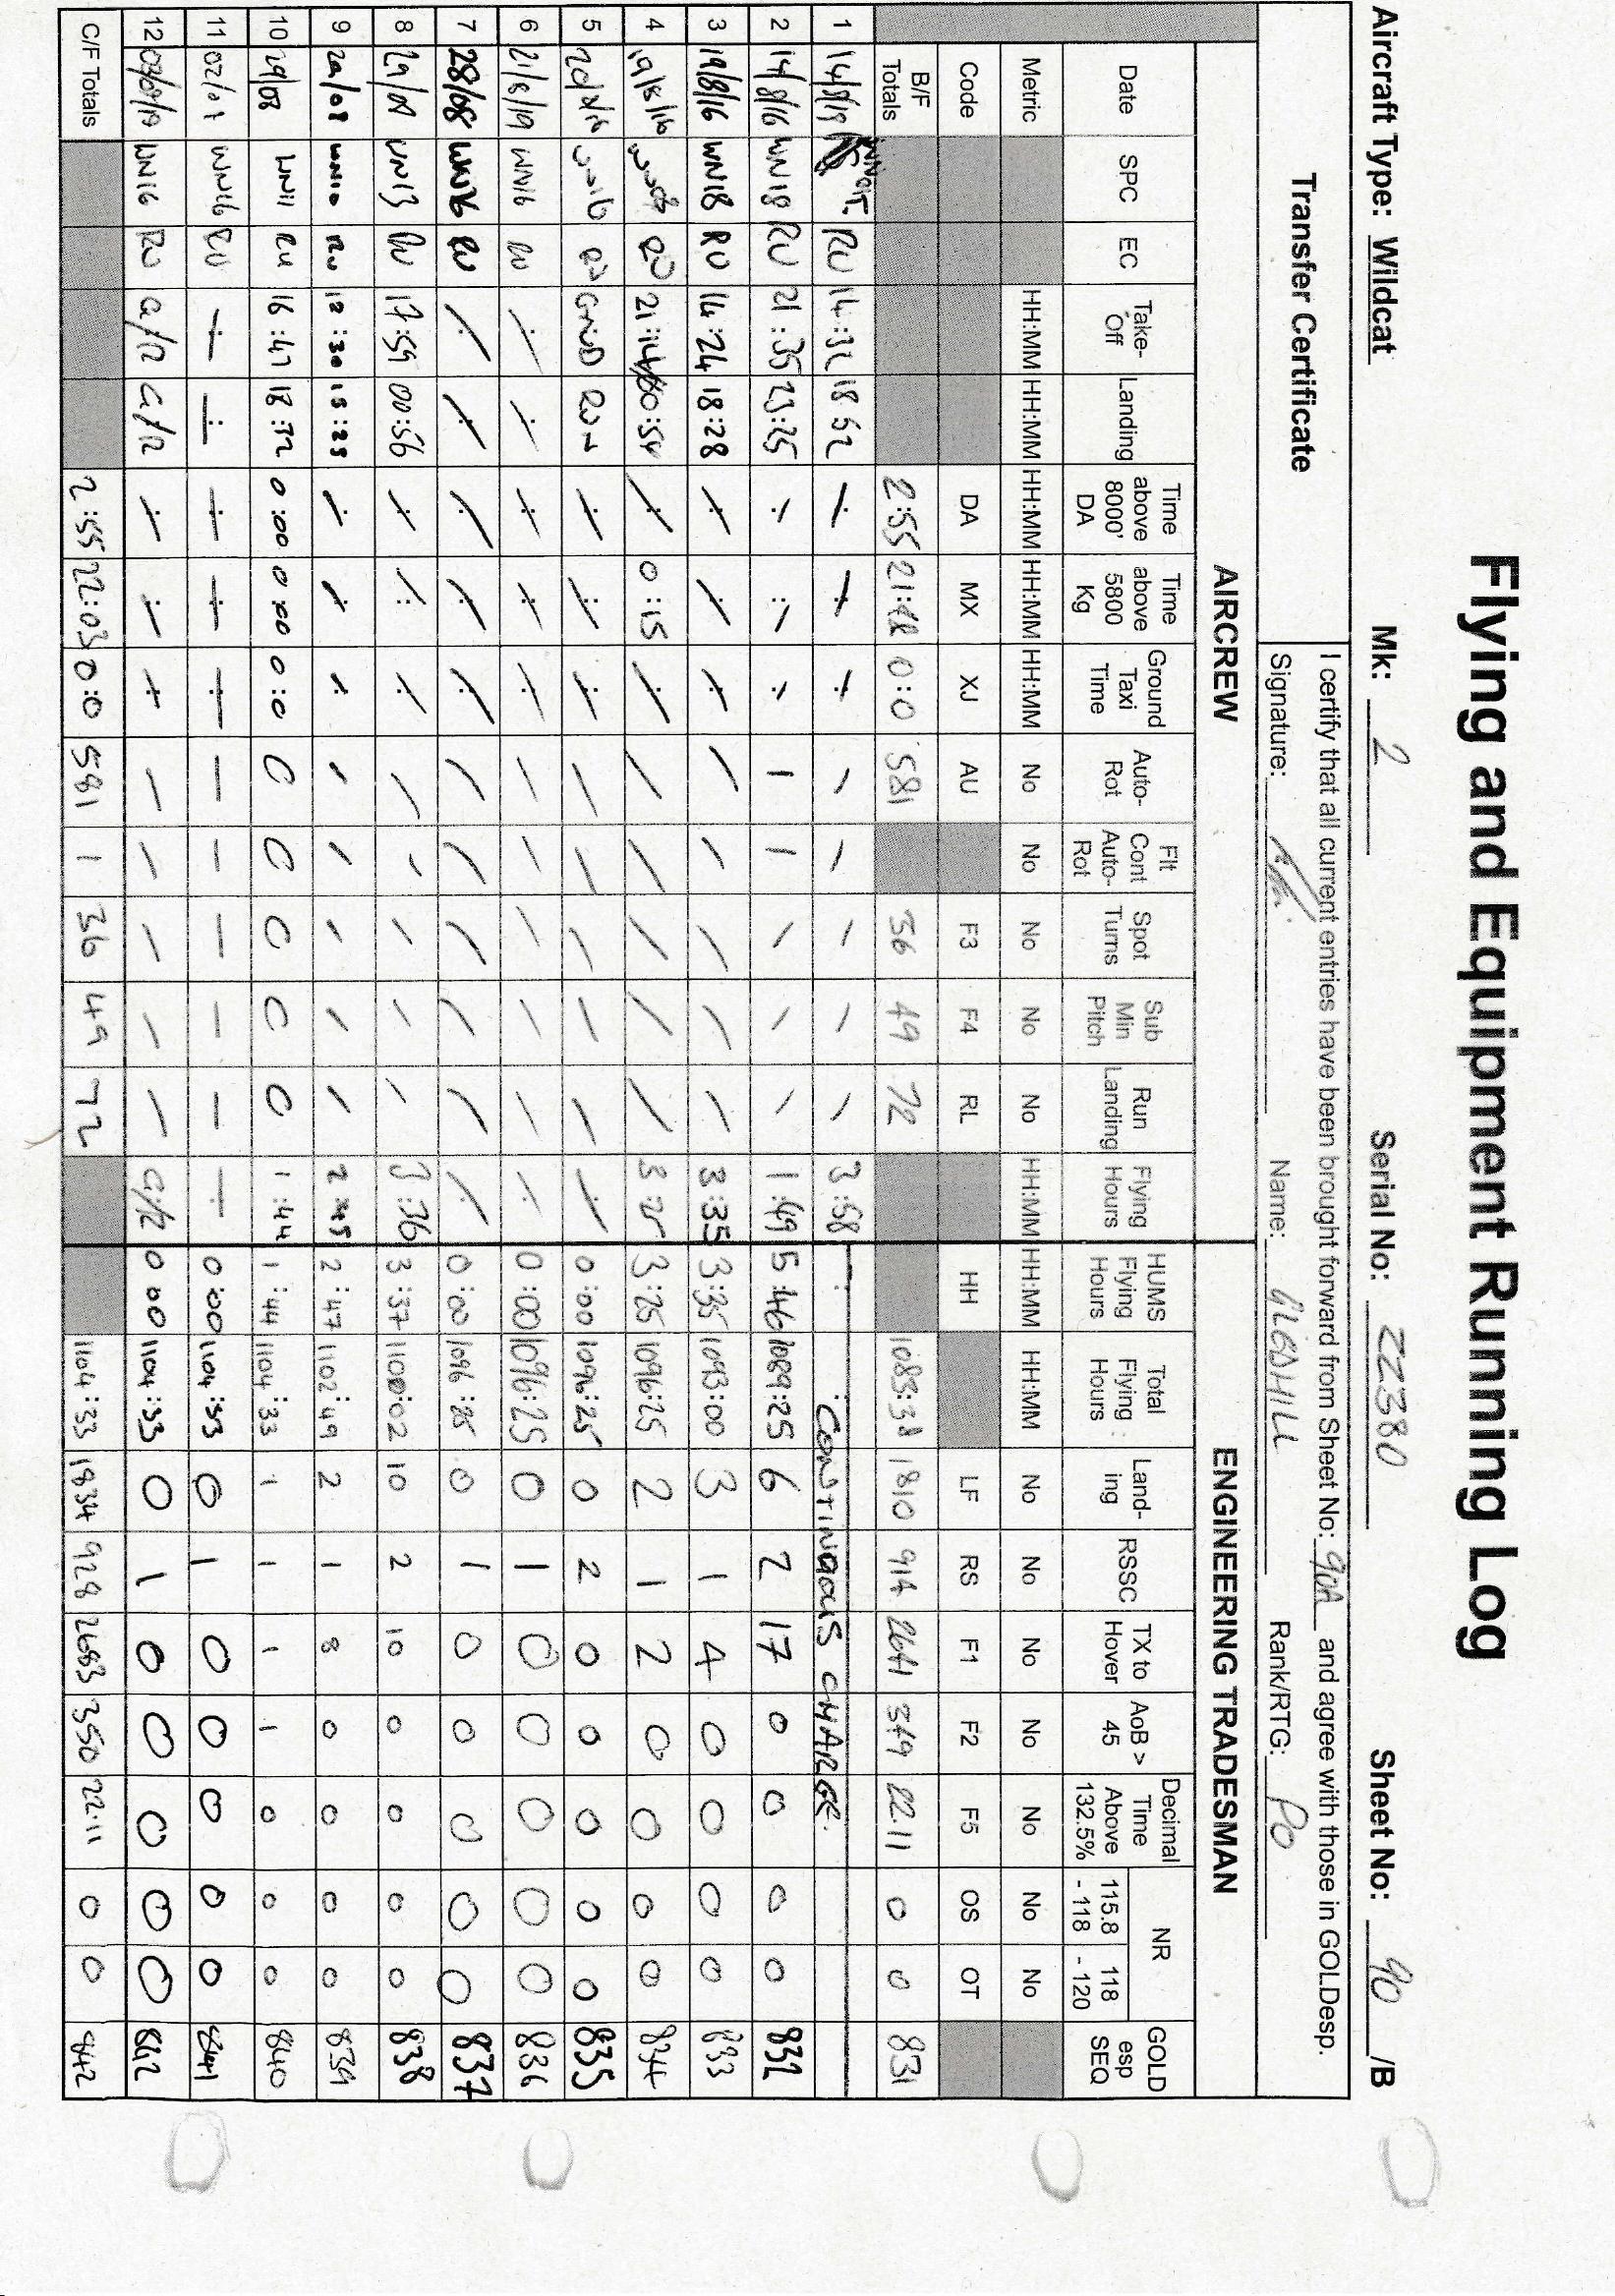 Flying and Equipment Running Log
Aircraft Type: Wildcat Mk: 2 Serial No: ZZ380 Sheet No: 90 /B
Transfer Certificate
I certify that all current entries have been brought forward from Sheet No: 90A and agree with those in GOLDesp.
Signature: Name: GLEDHILL Rank/RTG: PO
AIRCREW ENGINEERING TRADESMAN
Date SPC EC Take-Off Landing Time above 8000' DA Time above 5800 Kg Ground Taxi Time Auto-Rot Flt Cont Auto-Rot Spot Turns Sub Min Pitch Run Landing Flying Hours HUMS Flying Hours Total Flying : Hours Land-ing RSSC TX to Hover AoB > 45 Decimal Time Above 132.5% NR 115.8 - 118 118 - 120 GOLD esp SEQ
Metric HH:MM HH:MM HH:MM HH:MM HH:MM No No No No No HH:MM HH:MM HH:MM No No No No No No No
Code DA MX XJ AU F3 F4 RL HH LF RS F1 F2 F5 OS OT
B/F Totals 2:55 21:48 0:0 581 36 49 72 1083:38 1810 914 2641 349 22.11 0 0 831
1 14/8/19 RU 14:32 18 52 / / / / / / / / 3:58 : CONTINUOUS CHARGE.
2 14/8/16 WN18 RU 21:35 23:25 / / / / / / / / 1:49 5:46 1089:25 6 2 17 0 0 0 0 832
3 19/8/16 WN18 RU 14:24 18:28 / / / / / / / / 3:35 3:35 1093:00 3 1 4 0 0 0 0 833
4 19/8/16 RU 21:14 00:54 / 0:15 / / / / / / 3:25 3:25 1096:25 2 1 2 0 0 0 0 834
5 20/8/16 WN16 RU GND RUN / / / / / / / / / 0:00 1096:25 0 2 0 0 0 0 0 835
6 21/8/19 WN16 RU / / / / / / / / / / / 0:00 1096:25 0 1 0 0 0 0 0 836
7 28/08 WN16 RU / / / / / / / / / / / 0:00 1096:25 0 1 0 0 0 0 0 837
8 29/08 WN13 RU 17:59 00:56 / / / / / / / / 3:36 3:37 1100:02 10 2 10 0 0 0 0 838
9 29/08 WN10 RU 12:30 15:25 / / / / / / / / 2:45 2:47 1102:49 2 1 8 0 0 0 0 839
10 29/08 WN11 RU 16:47 18:32 0:00 0:00 0:0 0 0 0 0 0 1:44 1:44 1104:33 1 1 1 1 0 0 0 840
11 02/09 WN16 RU / / / / / / / / / / / 0:00 1104:33 0 1 0 0 0 0 0 841
12 03/09/19 WN16 RU G/R G/R / / / / / / / / G/R 0:00 1104:33 0 1 0 0 0 0 0 842
C/F Totals 2:55 22:03 0:0 581 1 36 49 72 1104:33 1834 928 2683 350 22.11 0 0 842